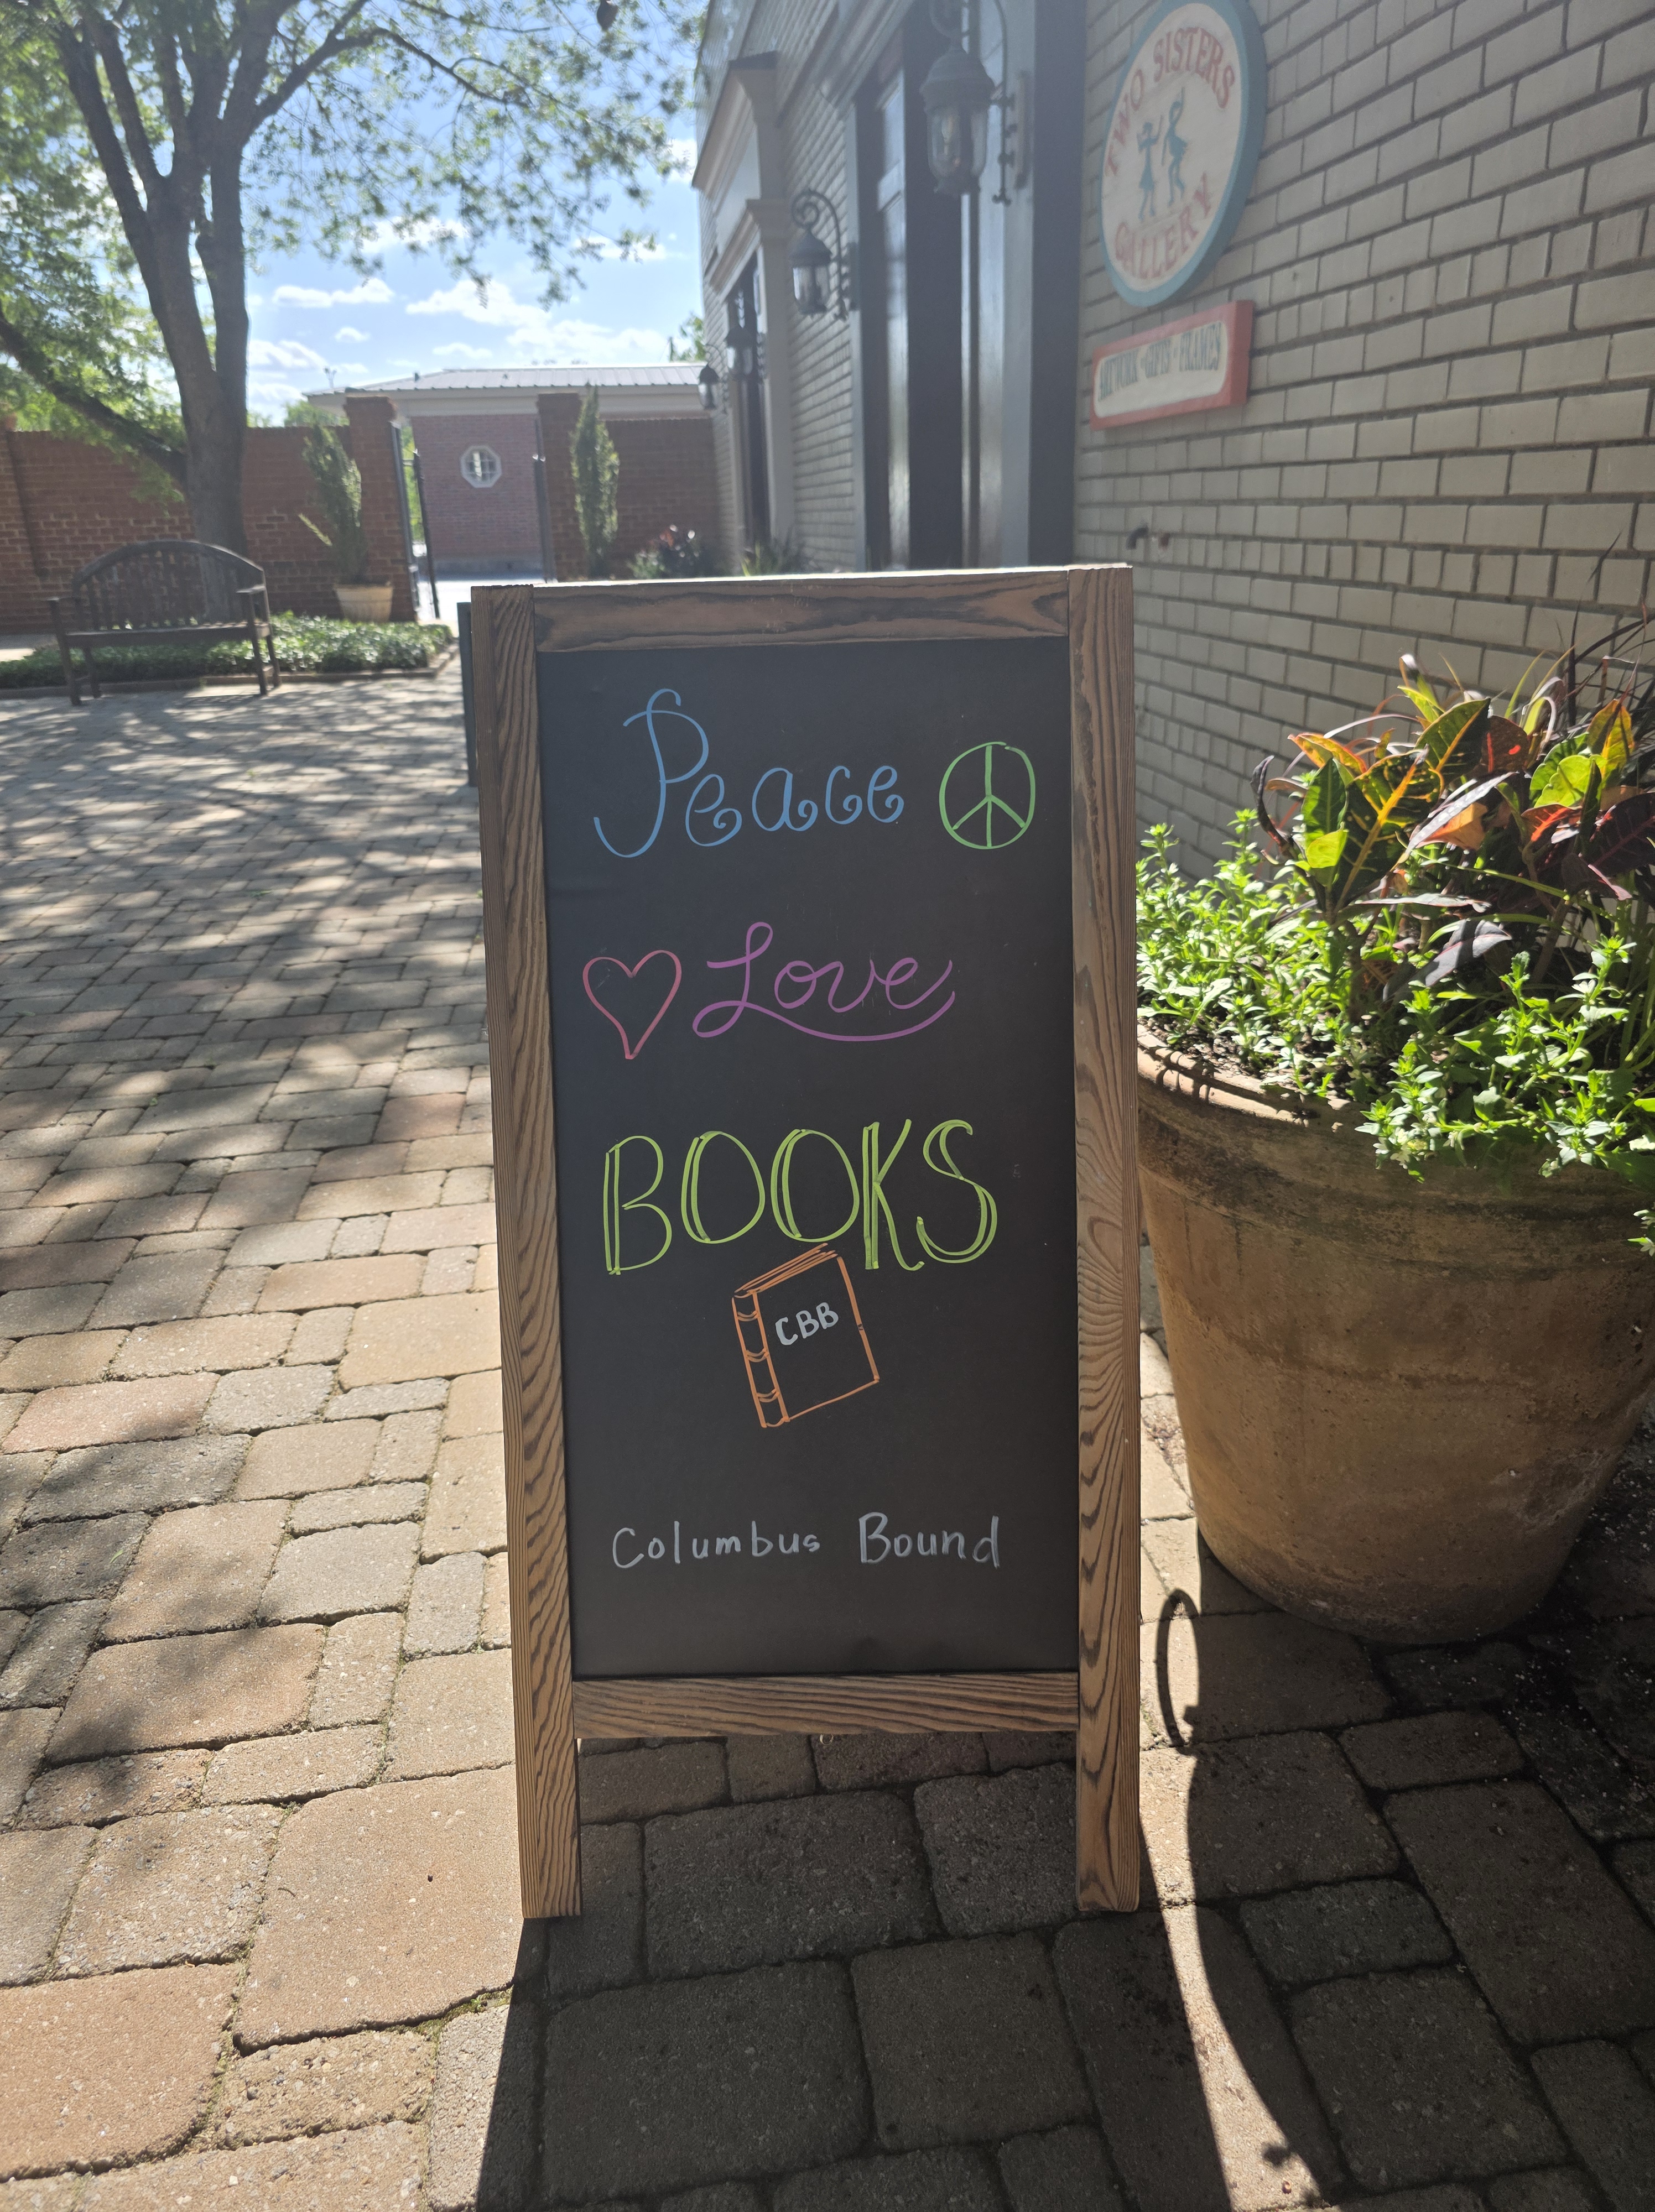 TWO SISTERS
GALLERY
ARTWORK · GIFTS · FRAMES
Peace
Love
BOOKS
CBB
Columbus Bound